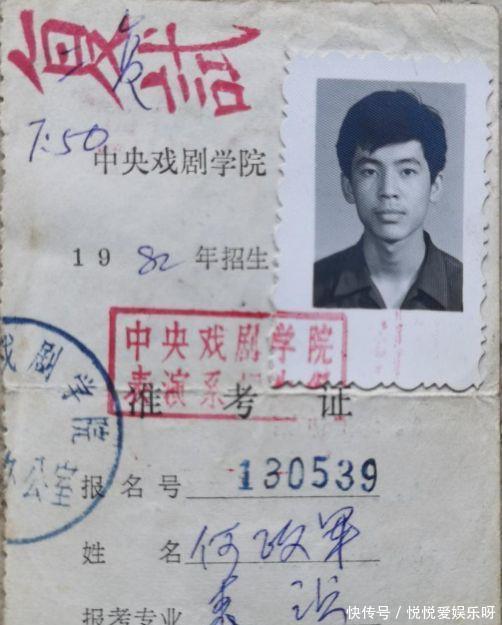 复试
7:50
中央戏剧学院
1982年招生
中央戏剧学院
表演系
准考证
戏剧学院
办公室
报名号 130539
姓名 何政军
报考专业 表演
快传号/悦悦爱娱乐呀